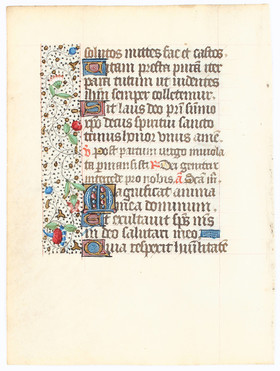 solutos mittes fac et castos.
Vitam presta puram iter
para tutum ut videntes
ihm semper colletemur.
Sit laus deo pri sumo
xpo decus spiritui sancto
trinus honor unus amen.
v Post partum virgo inviola
ta permansisti R Dei genitrix
intercede pro nobis. a
Magnificat anima
mea dominum.
Et exultavit sps ms
in deo salutari meo
Quia respexit humilitate